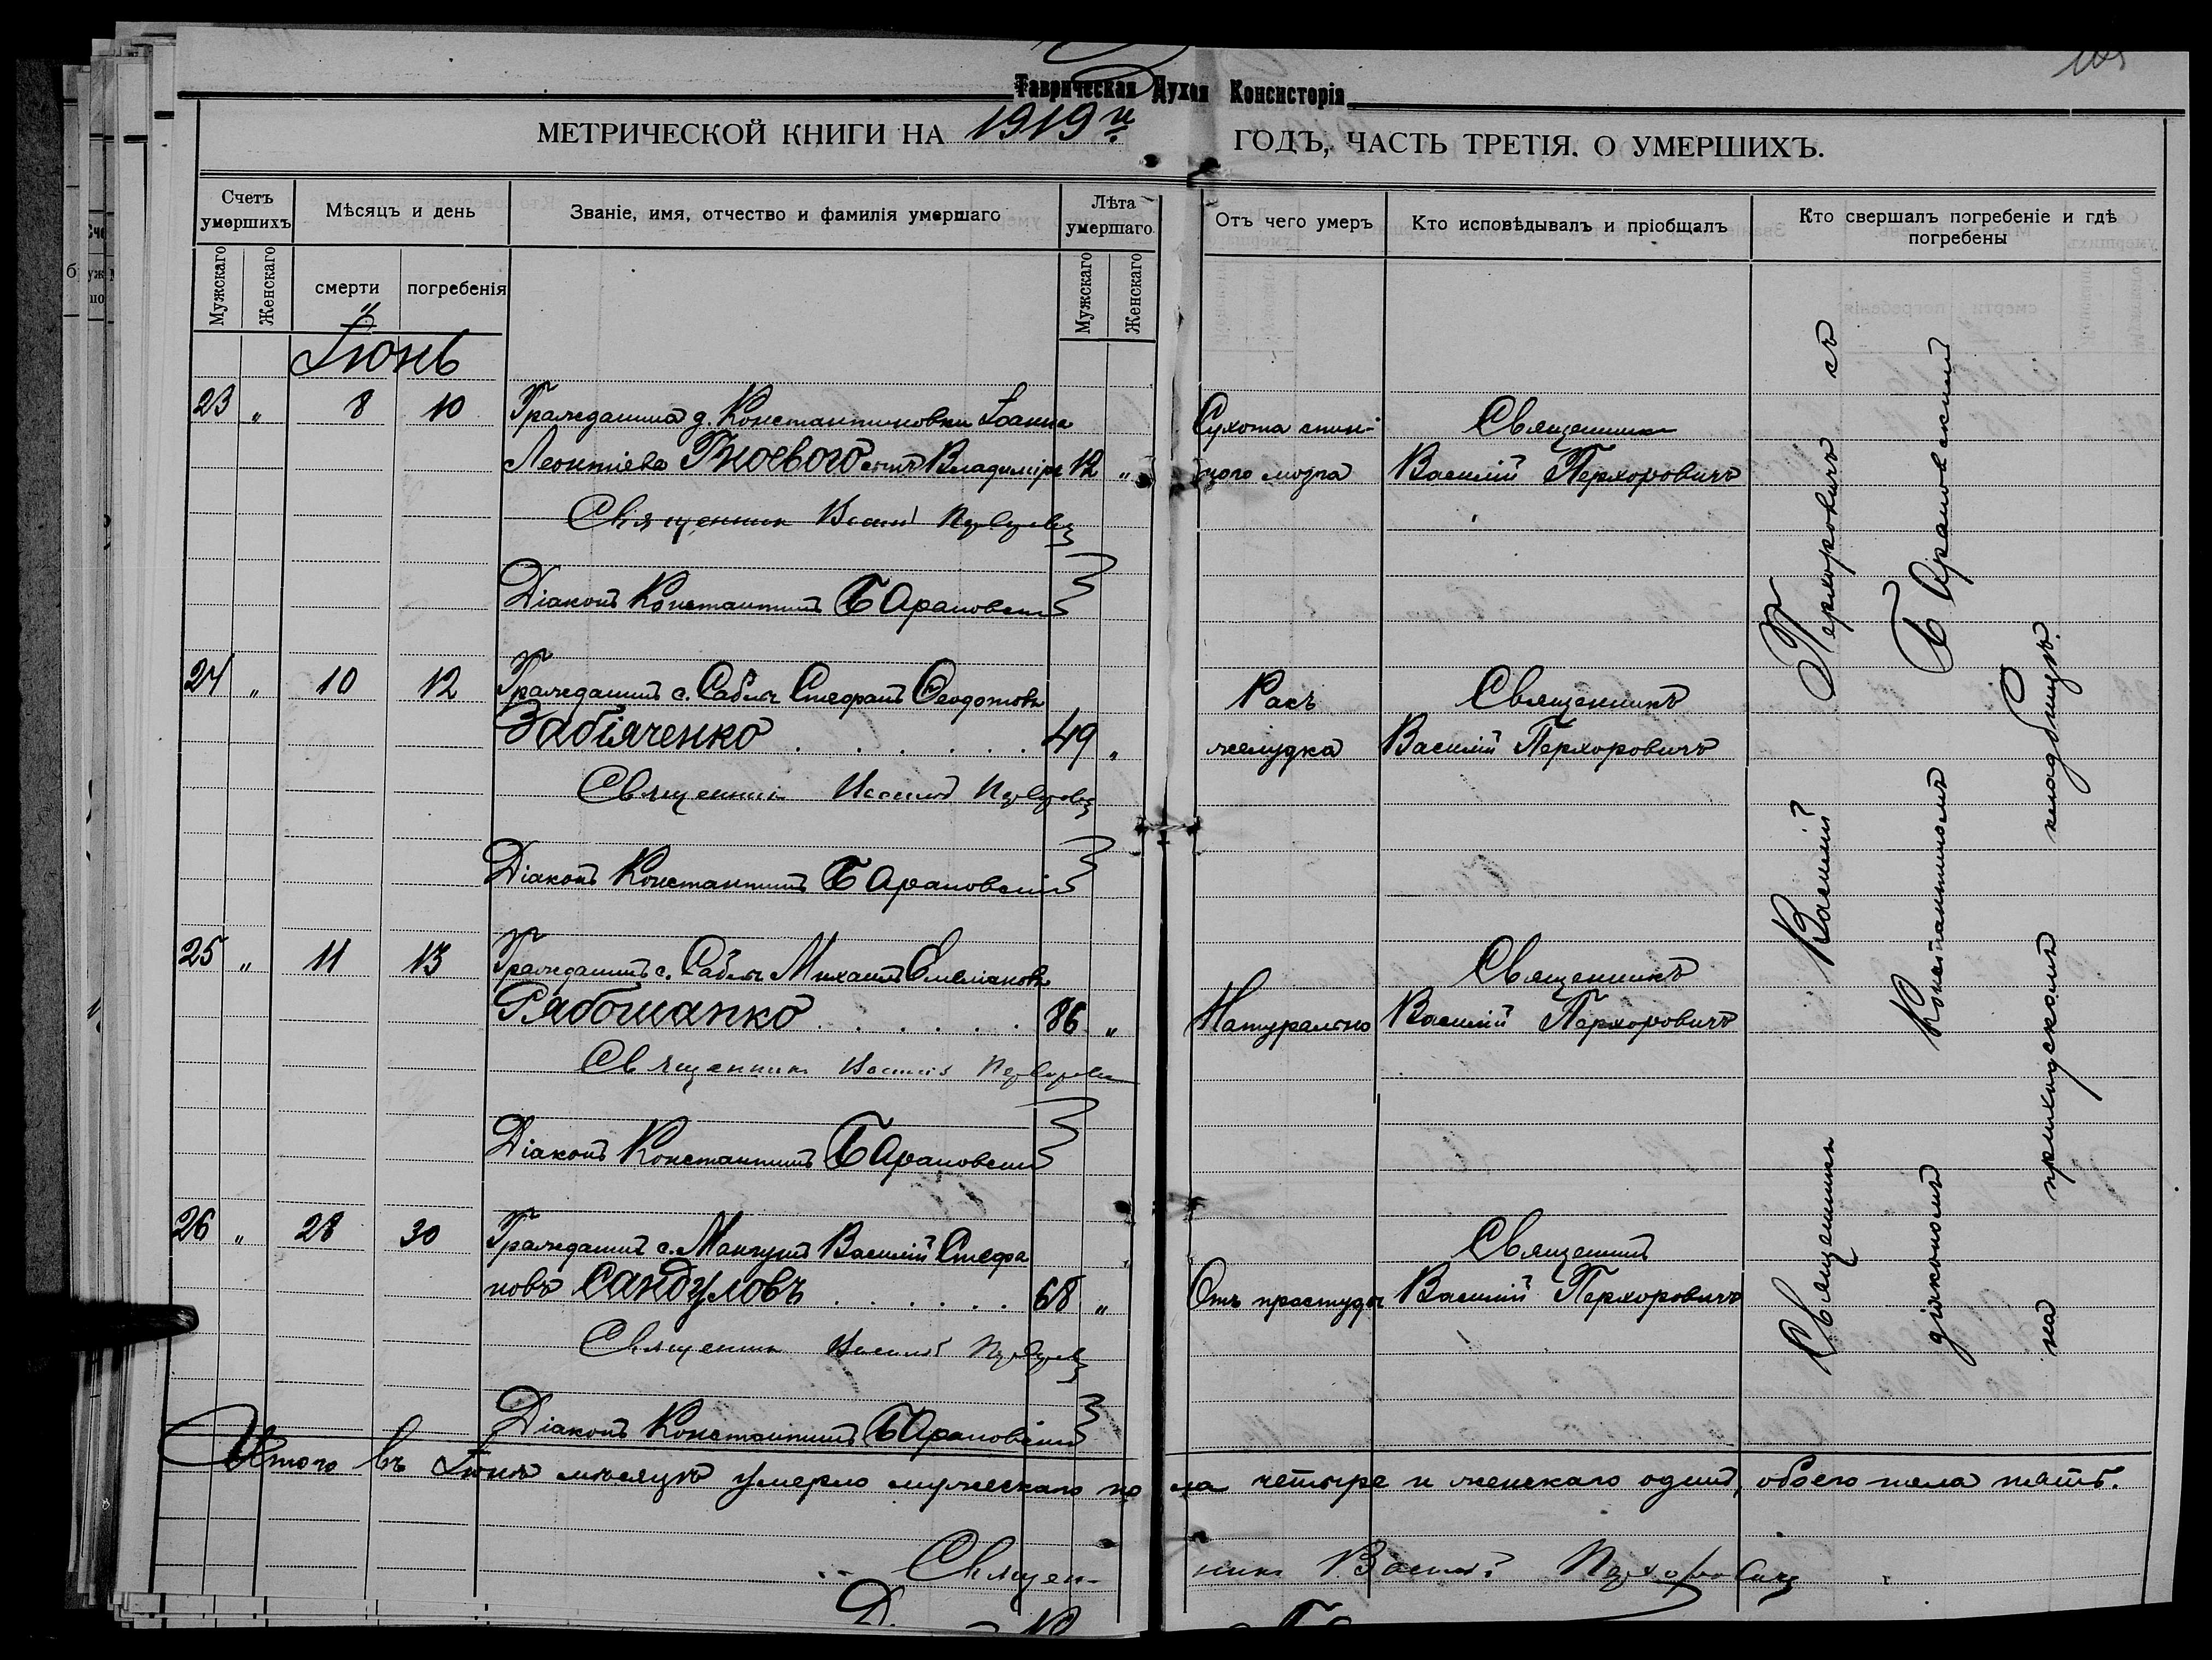 Таврическая Духов. Консисторія
МЕТРИЧЕСКОЙ КНИГИ НА 1919й ГОДЪ, ЧАСТЬ ТРЕТІЯ. О УМЕРШИХЪ.
Счетъ умершихъ
Мѣсяцъ и день
Званіе, имя, отчество и фамилія умершаго
Лѣта умершаго
Отъ чего умеръ
Кто исповѣдывалъ и пріобщалъ
Кто свершалъ погребеніе и гдѣ погребены
Мужскаго
Женскаго
смерти
погребенія
Мужскаго
Женскаго
Іюнь
23 „ 8 10 Гражданина д. Константиновки Іоанна
Леонтіева Гноевого сынъ Владиміръ 12 „
Сухота спин-
ного мозга
Священникъ
Василій Перхоровичъ
Священникъ Василій Перхоровичъ
Діаконъ Константинъ Барановскій
24 „ 10 12 Гражданинъ с. Саблы Стефанъ Ѳеодотовъ
Забіяченко 49 „
Ракъ
желудка
Священникъ
Василій Перхоровичъ
Священникъ Василій Перхоровичъ
Діаконъ Константинъ Барановскій
25 „ 11 13 Гражданинъ с. Саблы Михаилъ Емеліановъ
Рябошапко 86 „
Натурально
Священникъ
Василій Перхоровичъ
Священникъ Василій Перхоровичъ
Діаконъ Константинъ Барановскій
26 „ 28 30 Гражданинъ с. Мангушъ Василій Стефа
новъ Сандуловъ 68 „
Отъ простуды
Священникъ
Василій Перхоровичъ
Священникъ Василій Перхоровичъ
Діаконъ Константинъ Барановскій
Священникъ Василій Перхоровичъ съ
діакономъ Константиномъ Барановскимъ
на приходскомъ кладбищѣ.
Итого въ Іюнѣ мѣсяцѣ умерло мужескаго пола четыре и женскаго одинъ, обоего пола пять.
Священникъ Василій Перхоровичъ